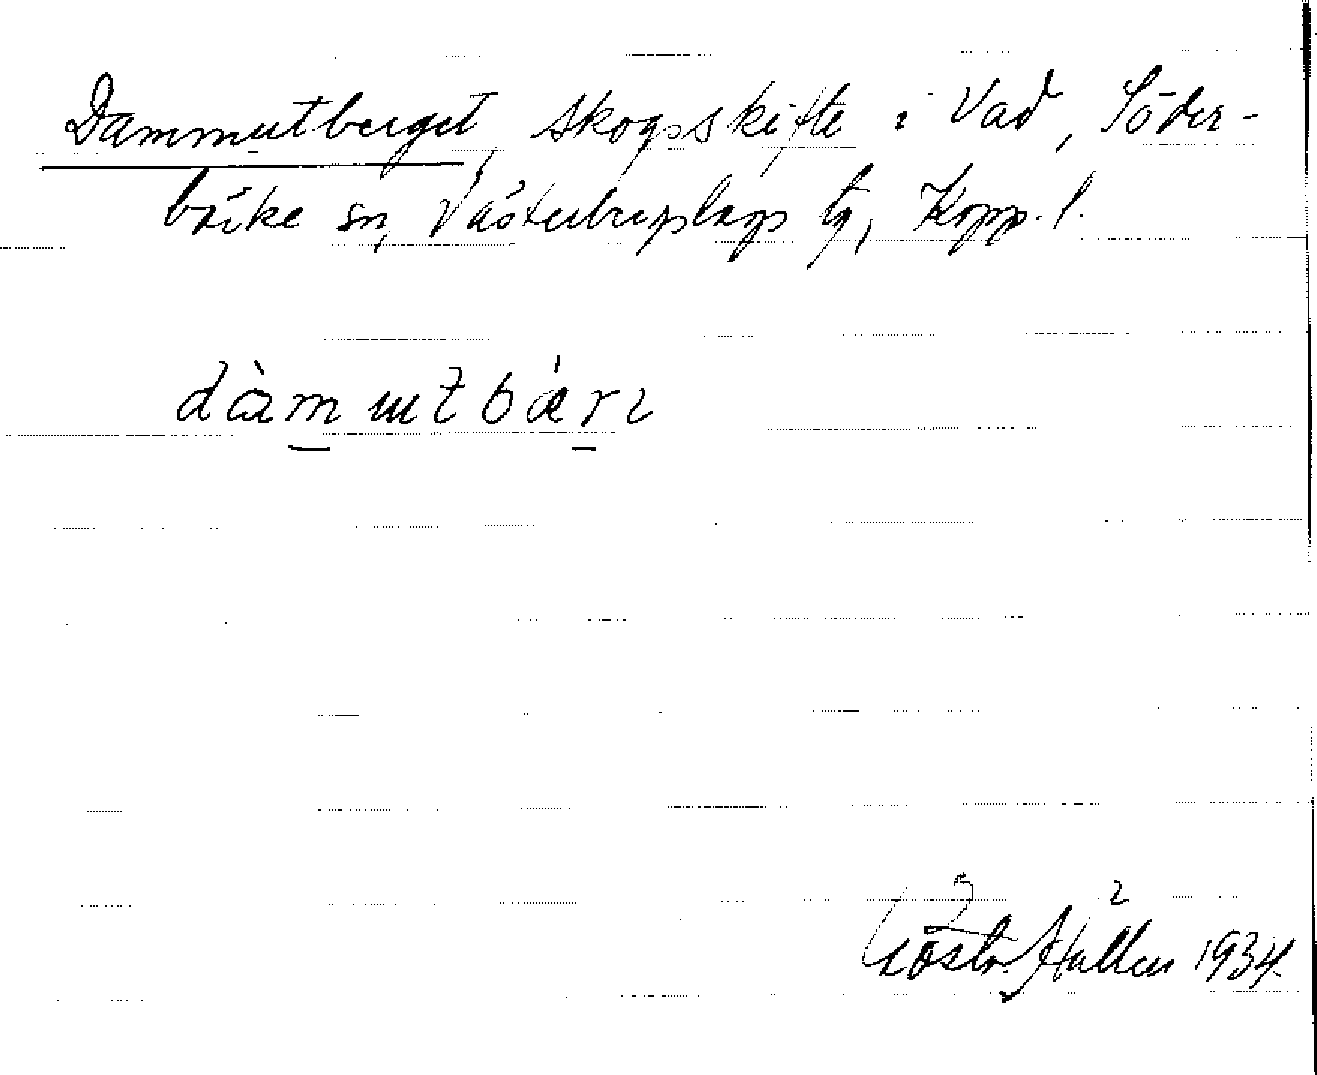 Dammutberget, skogsskifte i Vad, Söder-
bärke sn, Västerbergslags tg, Kopp. l.
dàmutbári
Gösta Hallen 1934.